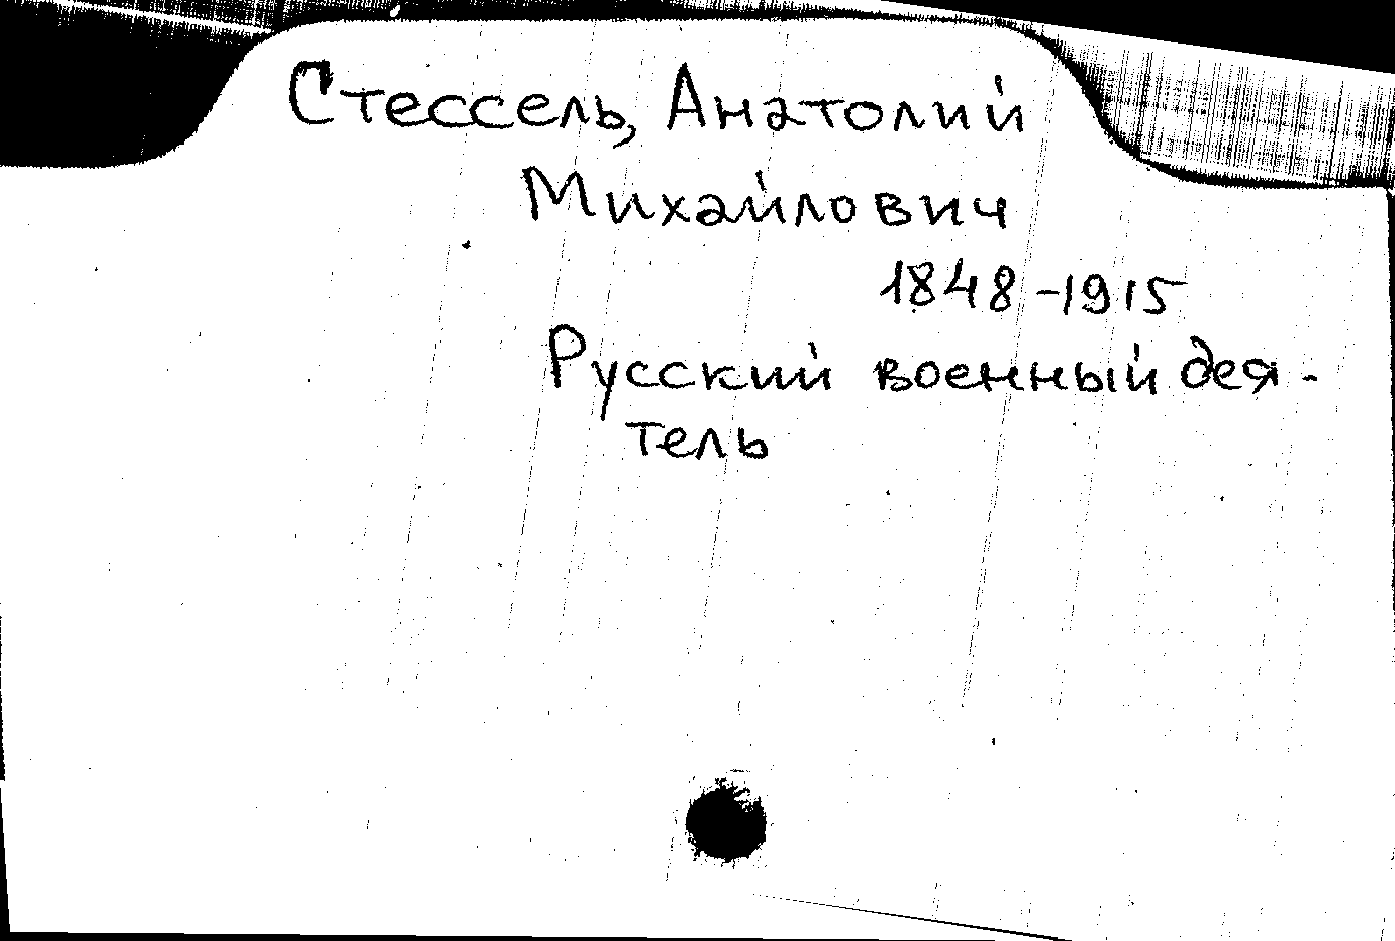 Стессель, Анатолий
Михайлович
1848-1915
Русский военный дея-
тель